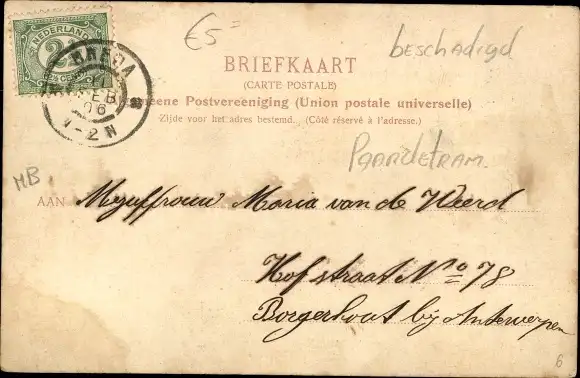 NEDERLAND
2½
BREDA
FEB
06
1-2 N
€5=
beschadigd
BRIEFKAART
(CARTE POSTALE)
Algemeene Postvereeniging (Union postale universelle)
Zijde voor het adres bestemd. (Côté réservé à l'adresse.)
Paardetram.
MB
AAN Mejuffrouw Maria van de Weerd
Hofstraat No 78
Borgerhout bij Antwerpen
6